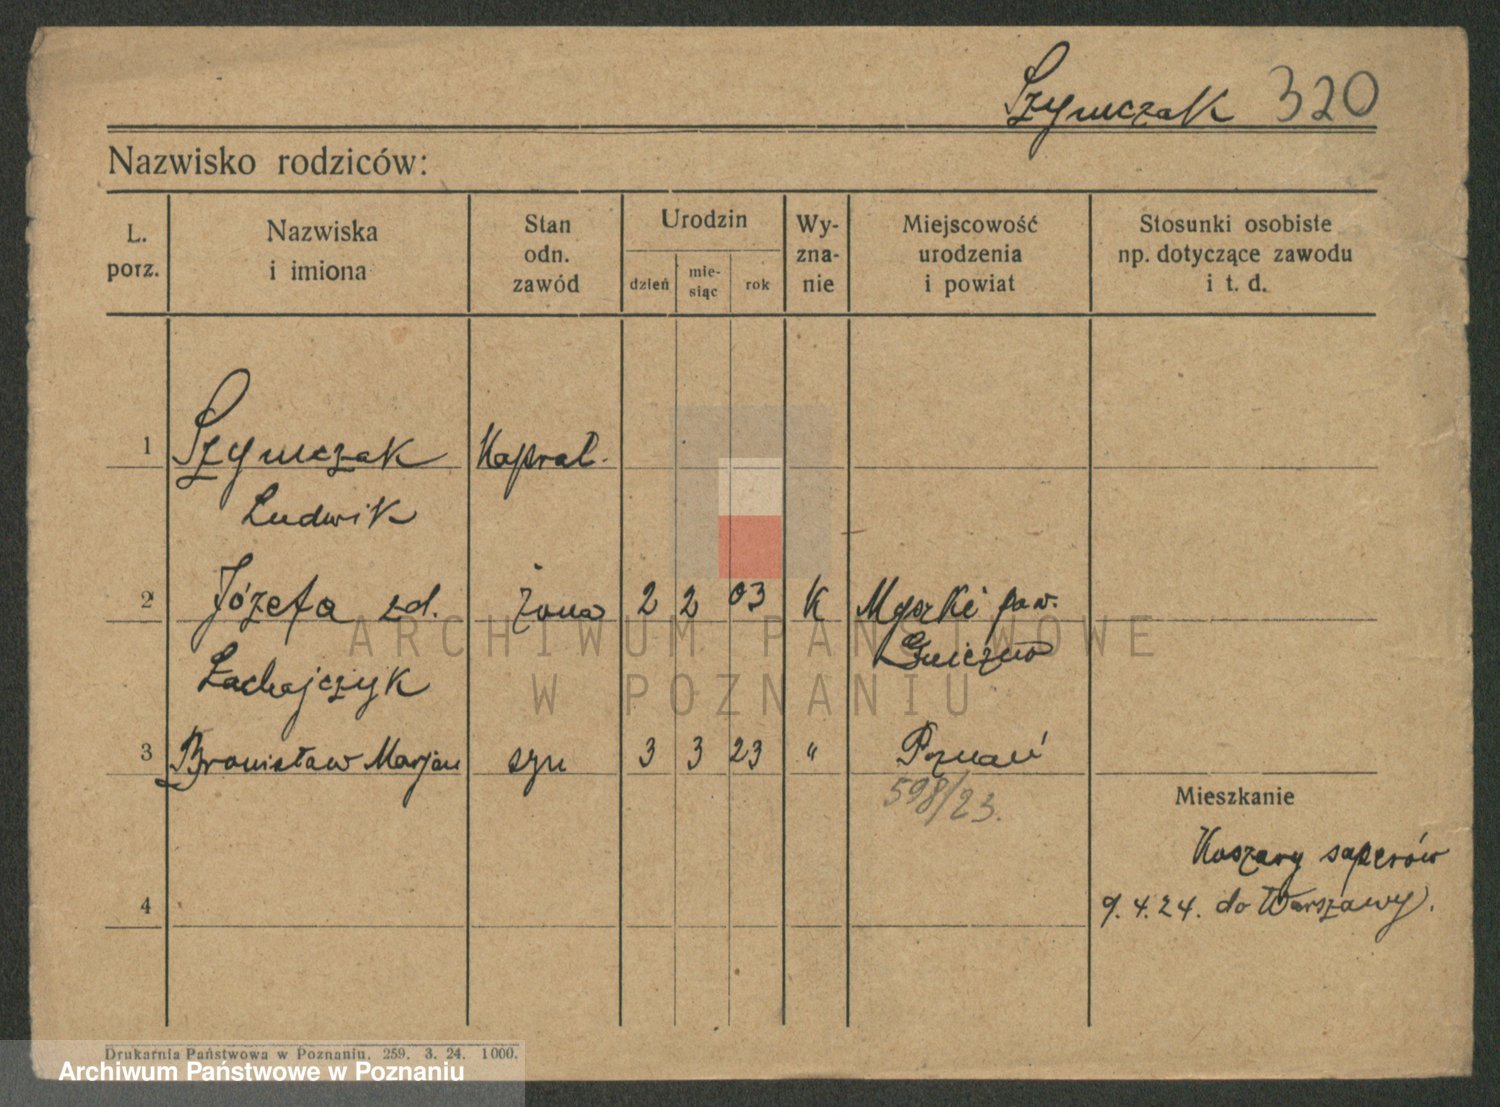 Szymczak 320
Nazwisko rodziców:
L. porz.
Nazwiska i imiona
Stan odn. zawód
Urodzin
dzień
mie- siąc
rok
Wy- zna- nie
Miejscowość urodzenia i powiat
Stosunki osobiste np. dotyczące zawodu i t. d.
1 Szymczak Kapral.
Ludwik
2 Józefa zd. żona 2 2 03 K pow.
Gniezno
Łachajczyk
3 Bronisław Marjan syn 3 3 23 " Poznań
598/23.
Mieszkanie
Koszary saperów
4
9.4.24. do Warszawy.
ARCHIWUM PAŃSTWOWE
W POZNANIU
Drukarnia Państwowa w Poznaniu. 259. 3. 24. 1000.
Archiwum Państwowe w Poznaniu